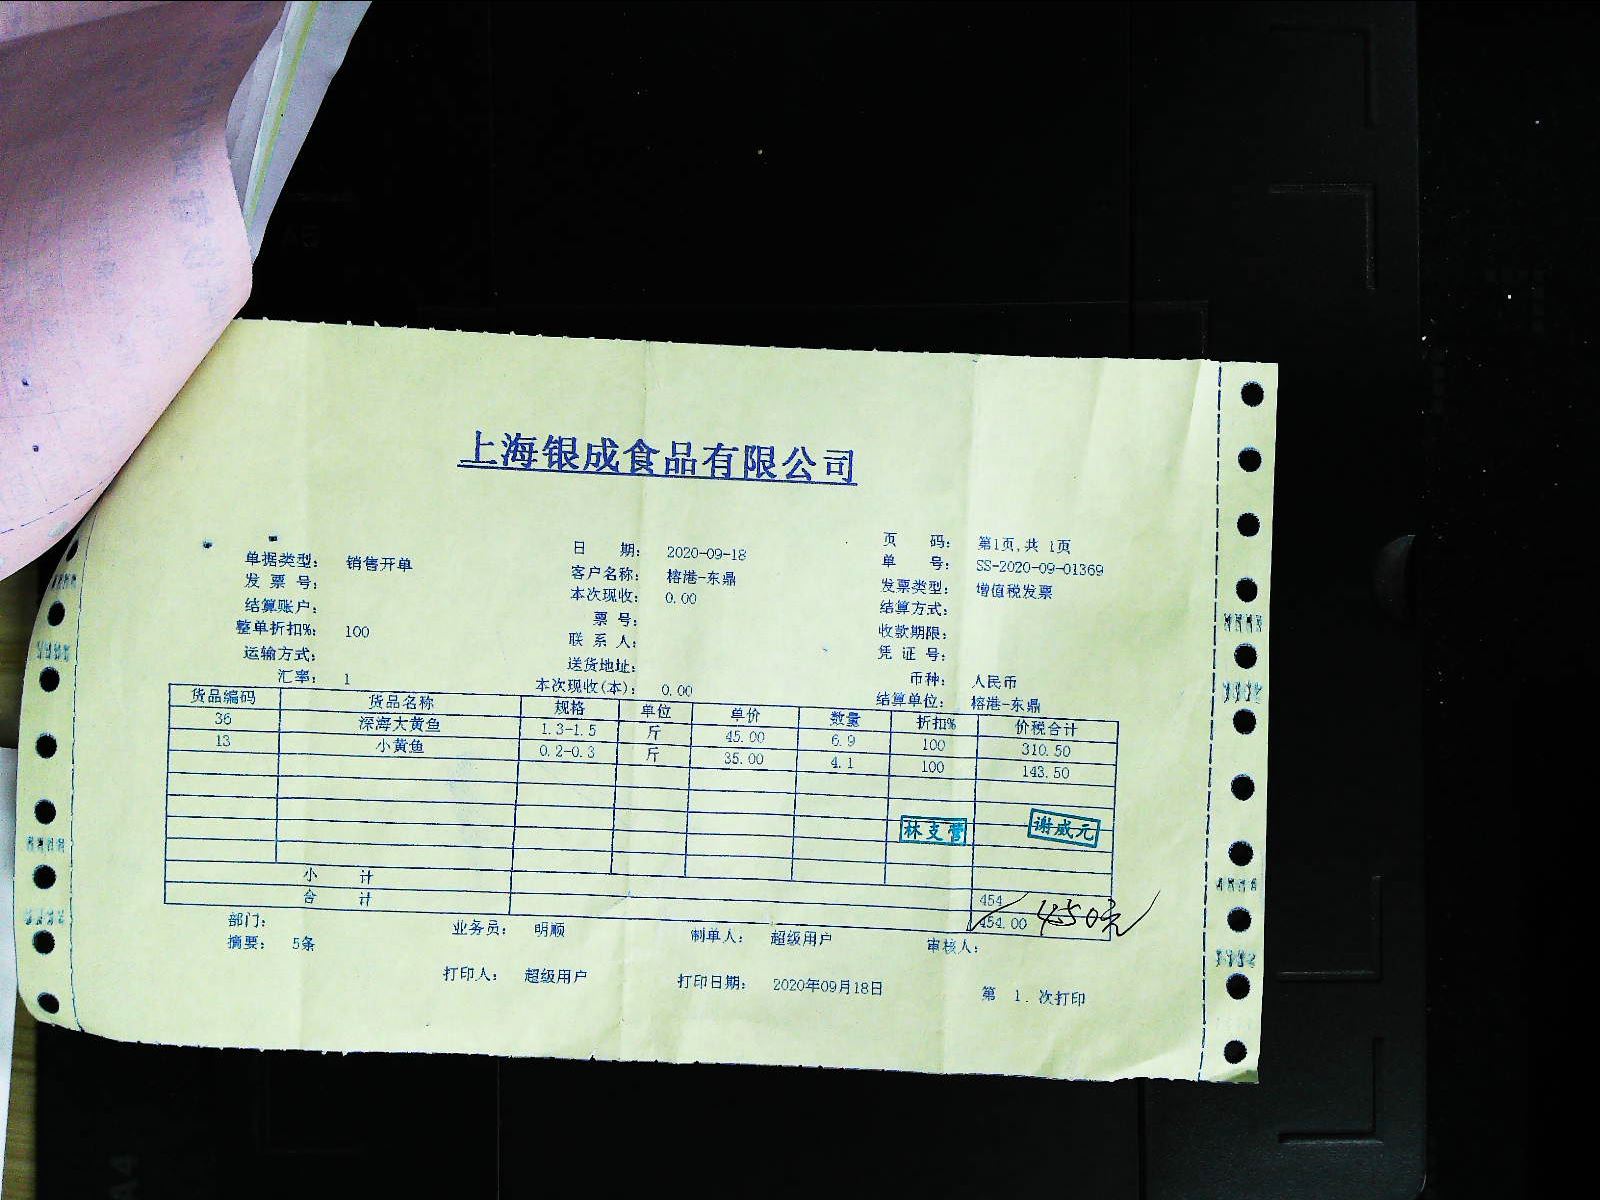 上海银成食品有限公司
单据类型： 销售开单 日 期： 2020-09-18 页 码： 第1页,共 1页
发 票 号： 客户名称： 榕港-东鼎 单 号： SS-2020-09-01369
结算账户： 本次现收： 0.00 发票类型： 增值税发票
整单折扣%： 100 票 号： 结算方式：
运输方式： 联 系 人： 收款期限：
汇率： 1 送货地址： 凭 证 号：
本次现收(本)： 0.00 币种： 人民币
结算单位： 榕港-东鼎
货品编码 货品名称 规格 单位 单价 数量 折扣% 价税合计
36 深海大黄鱼 1.3-1.5 斤 45.00 6.9 100 310.50
13 小黄鱼 0.2-0.3 斤 35.00 4.1 100 143.50
林支营 谢威元
小 计 454
合 计 454.00 450元
部门： 业务员： 明顺 制单人： 超级用户 审核人：
摘要： 5条
打印人： 超级用户 打印日期： 2020年09月18日 第 1. 次打印